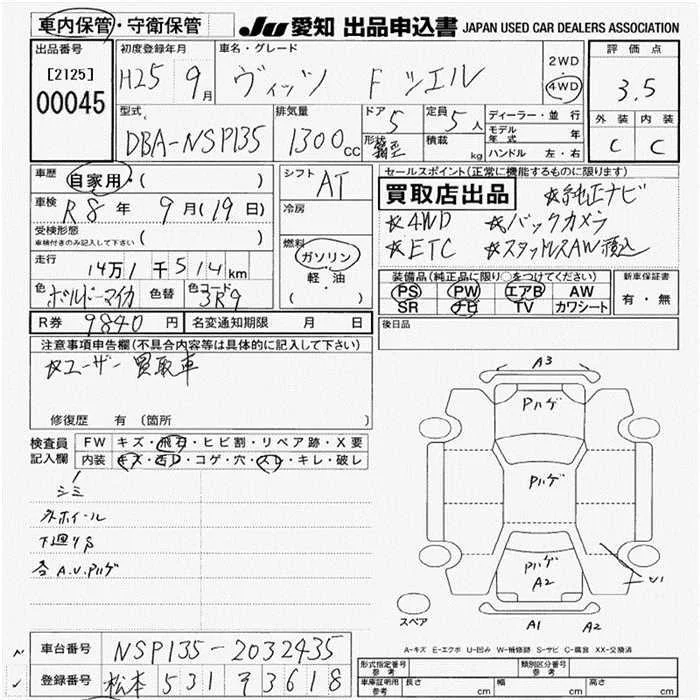 車内保管・守衛保管 JU 愛知 出品申込書 JAPAN USED CAR DEALERS ASSOCIATION
出品番号 [2125] 00045
初度登録年月 H25 9月
車名・グレード ヴィッツ F シエル
2WD 4WD
評価点 3.5
型式 DBA-NSP135
排気量 1300 CC
ドア 5 定員 5人
形状 積載 kg
ディーラー・並行
モデル年式 年
ハンドル 左・右
外装 C 内装 C
車歴 自家用・( )
シフト AT
セールスポイント(正常に機能するものに限ります)
買取店出品 ☆純正ナビ
車検 R8年 9月(19日)
冷房
☆4WD ☆バックカメラ
受検形態 車検付きのみ記入して下さい ( )
燃料 ガソリン・軽・油 ( )
☆ETC ☆スタッドレスAW積込
走行 14万1千514km
装備品(純正品に限り○をつけてください) 新車保証書
PS PW エアB AW
SR ナビ TV カワシート
有・無
色 ボルドーマイカ 色替 色コード 3R9
R券 9840円 名変通知期限 月 日
後日品
注意事項申告欄(不具合内容等は具体的に記入して下さい)
☆ユーザー買取車
修復歴 有 (箇所 )
検査員記入欄
FW キズ・飛石・ヒビ割・リペア跡・X要
内装 キズ・汚レ・コゲ・穴・スレ・キレ・破レ
シミ
外ホイール
下廻りS
各A.U.Pハゲ
A3
Pハゲ
Pハゲ
Pハゲ
A2
U1
スペア
A1 A2
A-キズ E-エクボ U-凹み W-補修跡 S-サビ C-腐食 XX-交換済
車台番号 NSP135-2032435
登録番号 松本 531 ヲ 3618
形式指定番号 参考 類別区分番号 参考
車庫証明用 参考 長さ cm 幅 cm 高さ cm